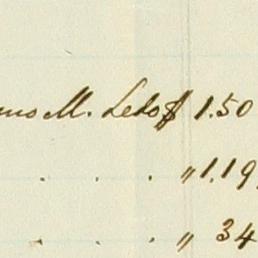 M. Ledo $ 1.50
. . . " 1.19
. . . " 34